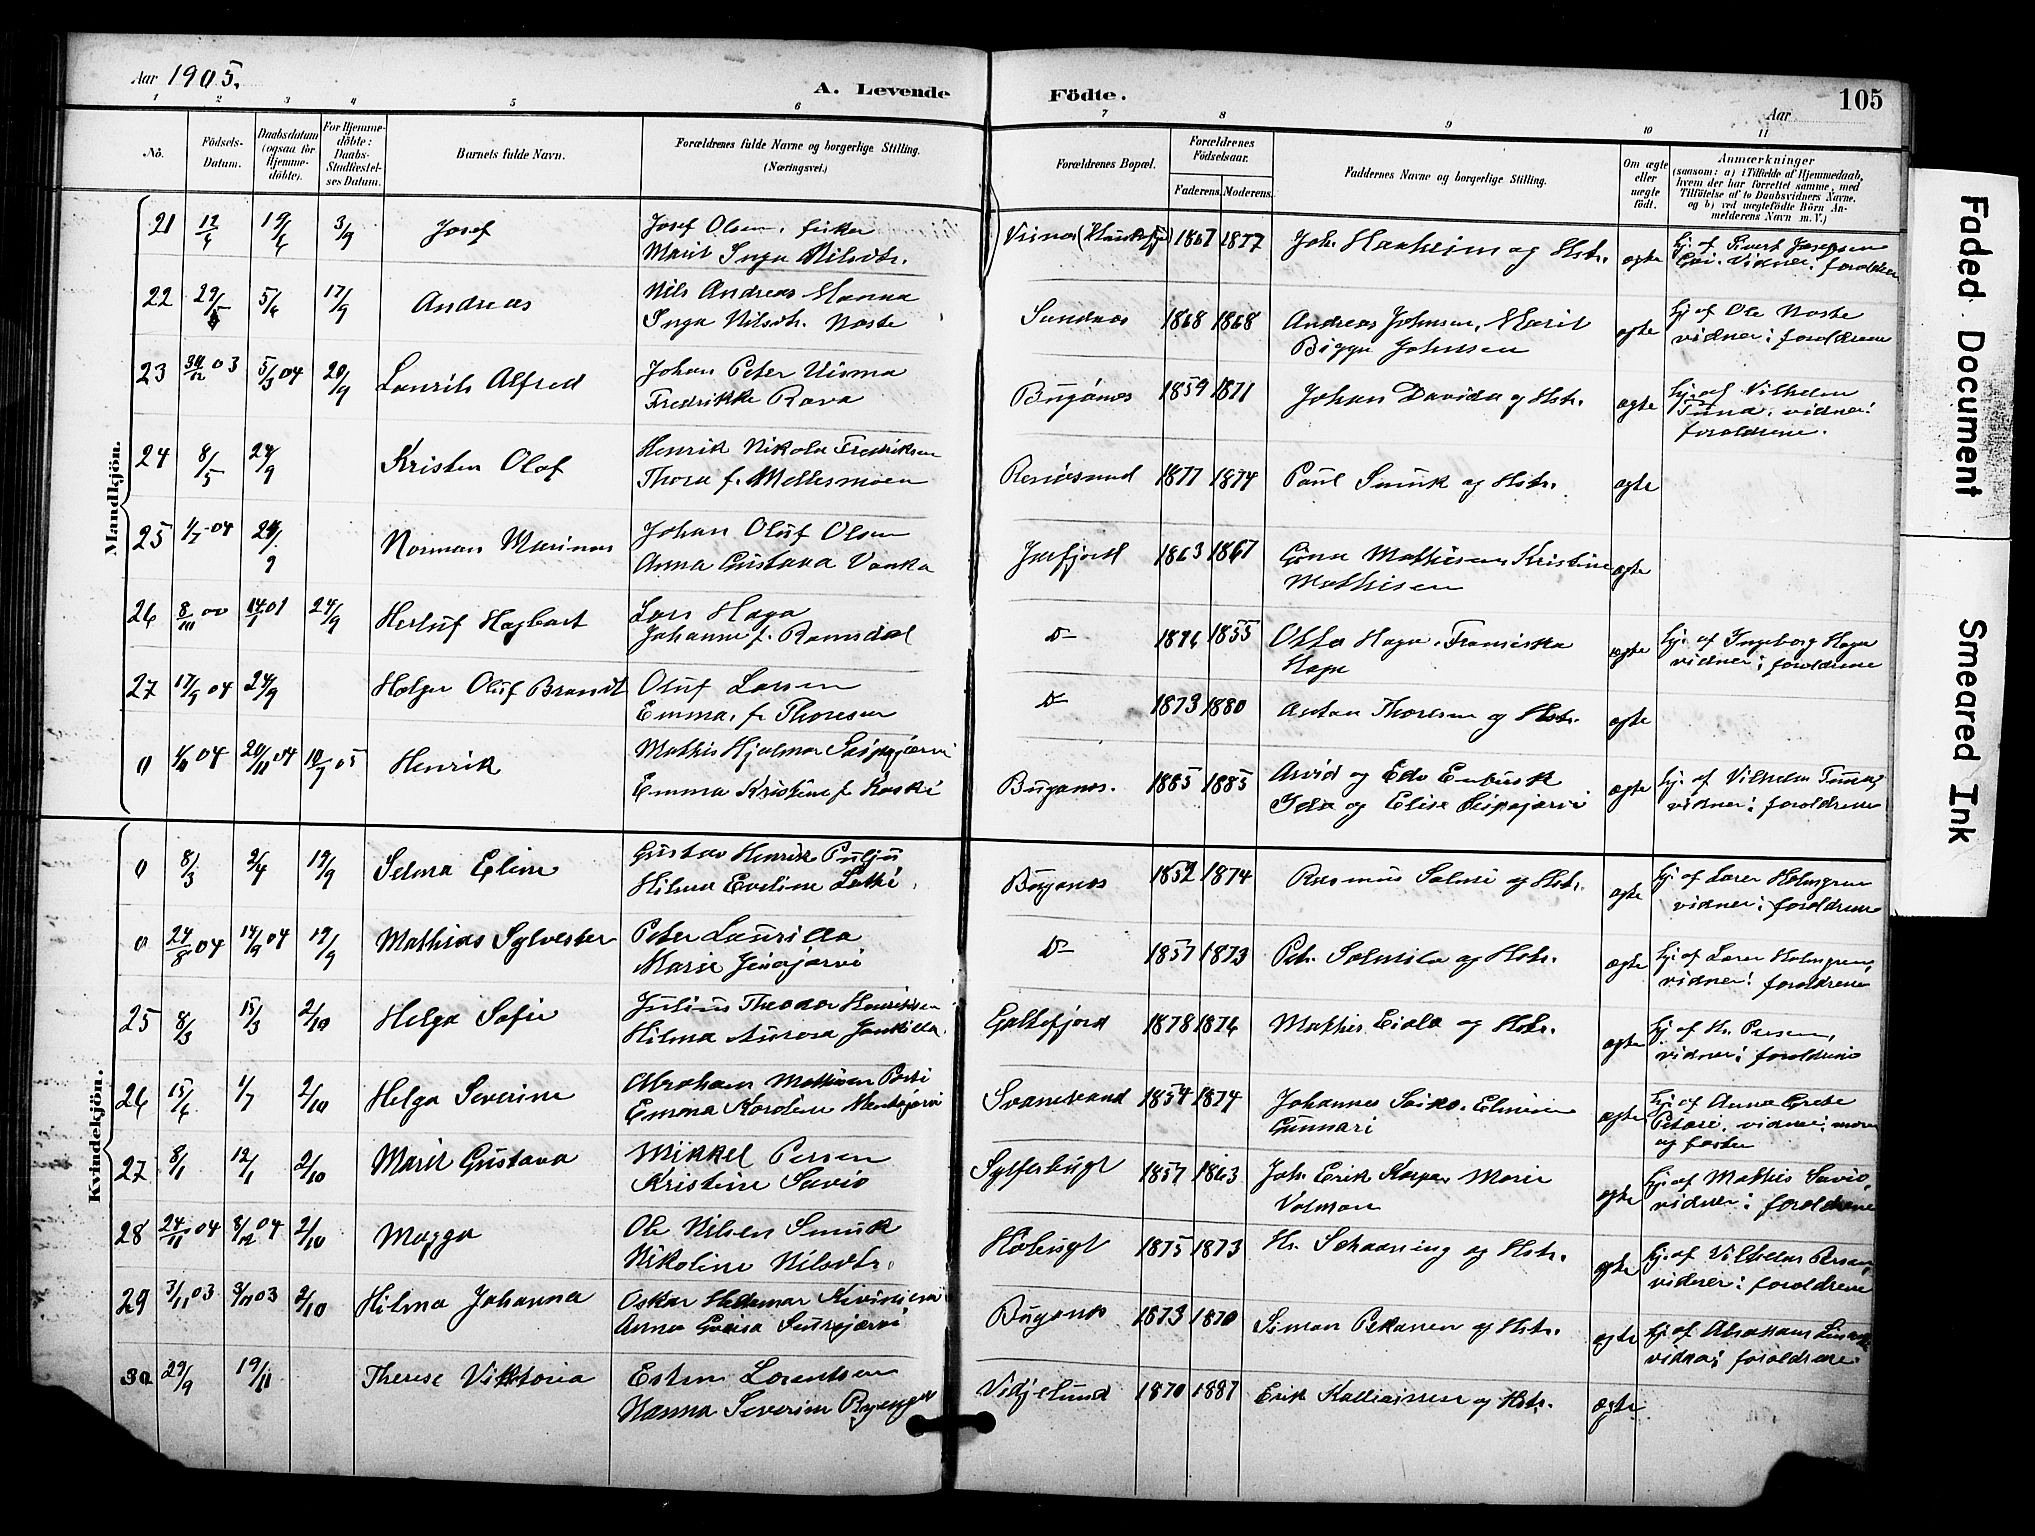 Aar 1905.
A. Levende
Födte.
Aar
105
1 2 3 4 5 6 7 8 9 10 11
No.
Födsels-
Datum.
Daabsdatum
(ogsaa for
Hjemme-
döbte).
For Hjemme-
döbte:
Daabs-
Stadfæstel-
ses Datum.
Barnets fulde Navn.
Forældrenes fulde Navne og borgerlige Stilling.
(Næringsvei.)
Forældrenes Bopæl.
Forældrenes
Födselsaar.
Faderens. Moderens.
Faddernes Navne og borgerlige Stilling.
Om ægte
eller
uægte
födt.
Anmærkninger
(saasom: a) i Tilfælde af Hjemmedaab,
hvem der har forrettet samme, med
Tilföielse af to Daabsvidners Navne.
og b) ved uægtefödte Börn An-
melderens Navn m. V.)
Mandkjön.
21 12/4 3/9 Josef
Josef Olsen, fisker
Marit Inga Nilsdtr.
1867 1877 og Hstr. ægte
vidner: foreldrene
22 5/6 17/9 Andreas
Nils Andreas Hanna
Inga Nilsdtr. Noste
Sundnes 1868 1868 Andreas Johnsen, Marit
Biggu Johnsen
ægte
hj. af Ole Noste
vidner: foreldrene
23 5/3 04 20/9 Laurits Alfred
Johan Peter Uisma
Fredrikke Rava
Bugönes 1859 1871 Johan Davida og Hstr. ægte
hj. af Vilhelm
vidner:
foreldrene.
24 8/5 24/9 Kristen Olaf
Henrik Nikolai Fredriksen
Thora f. Mellesmoen
1877 1874 Paul Smuk og Hstr. ægte
25 1/7 04 24/9 Norman Marinus
Johan Oluf Olsen
Anna Gustava Vanka
Jarfjord 1863 1867 Mathisen, Kristine
Mathisen
ægte
26 8/10 00 14/1 01 24/9 Herluf Hagbart
Lars Haga
Johanne f. Ramsdal
D 1855 Otto Haga, Franciska
Haga
ægte
hj. af Ingeborg Haga
vidner: foreldrene
27 17/9 04 24/9 Holger Oluf Brandt
Oluf Larsen
Emma, f. Thoresen
D 1873 1880 Anton Thoresen og Hstr. ægte
0 20/11 04 10/7 05 Henrik
Mathis Hjalmar Seipajærvi
Emma Kristine f. Koski
Bugønes. 1865 1885 Arvid og Edv.
Ida og Elise Seipajærvi
ægte
hj. af Vilhelm
vidner: foreldrene
Kvindekjön.
0 8/3 2/4 19/9 Selma Eline
Gustav Henrik Pulju
Hilma Eveline Lakki
Bugønes 1852 1874 Rasmus Salmi og Hstr. ægte
hj. af Lars Holmgren
vidner: foreldrene
0 24/8 04 14/9 04 19/9 Mathias Sylvester
Peter Laurilla
Marie
D 1857 1873 Petr. Salmila og Hstr. ægte
hj. af Lars Holmgren,
vidner: foreldrene
25 8/3 15/3 2/10 Helga Sofie
Julius Theodor Henriksen
Hilma Aurora
1878 1876 Mathis Eiala og Hstr. ægte
vidner: foreldrene
26 15/6 1/7 2/10 Helga Severine
Abraham Mathisen
Emma Karoline
Svanesand 1854 1874 Johannes
Gunnari
ægte
hj. af Anna Grete
vidner: mor
og faster
27 8/1 12/1 2/10 Marit Gustava
Mikkel Persen
Kristine Savio
1857 1863 Joh. Erik Kasper Marie
Volman
ægte
hj. af Mathis Savio,
vidner: foreldrene
28 24/11 04 8/12 04 2/10 Magga
Ole Nilsen Smuk
Nikoline Nilsdtr.
Holmugt 1875 1873 Hr. Schaaning og Hstr. ægte
hj. af Vilhelm Persen,
vidner: foreldrene
29 3/11 03 2/10 Hilma Johanna
Oskar
Anna
Bugønes 1873 1870 Simon Pekanen og Hstr. ægte
hj. af Abraham
vidner: foreldrene
30 29/9 19/11 Therese Viktoria
Esten Lorentsen
Hanna Severine
Vidjelund 1870 1887 Erik og Hstr. ægte
Faded Document
Smeared Ink